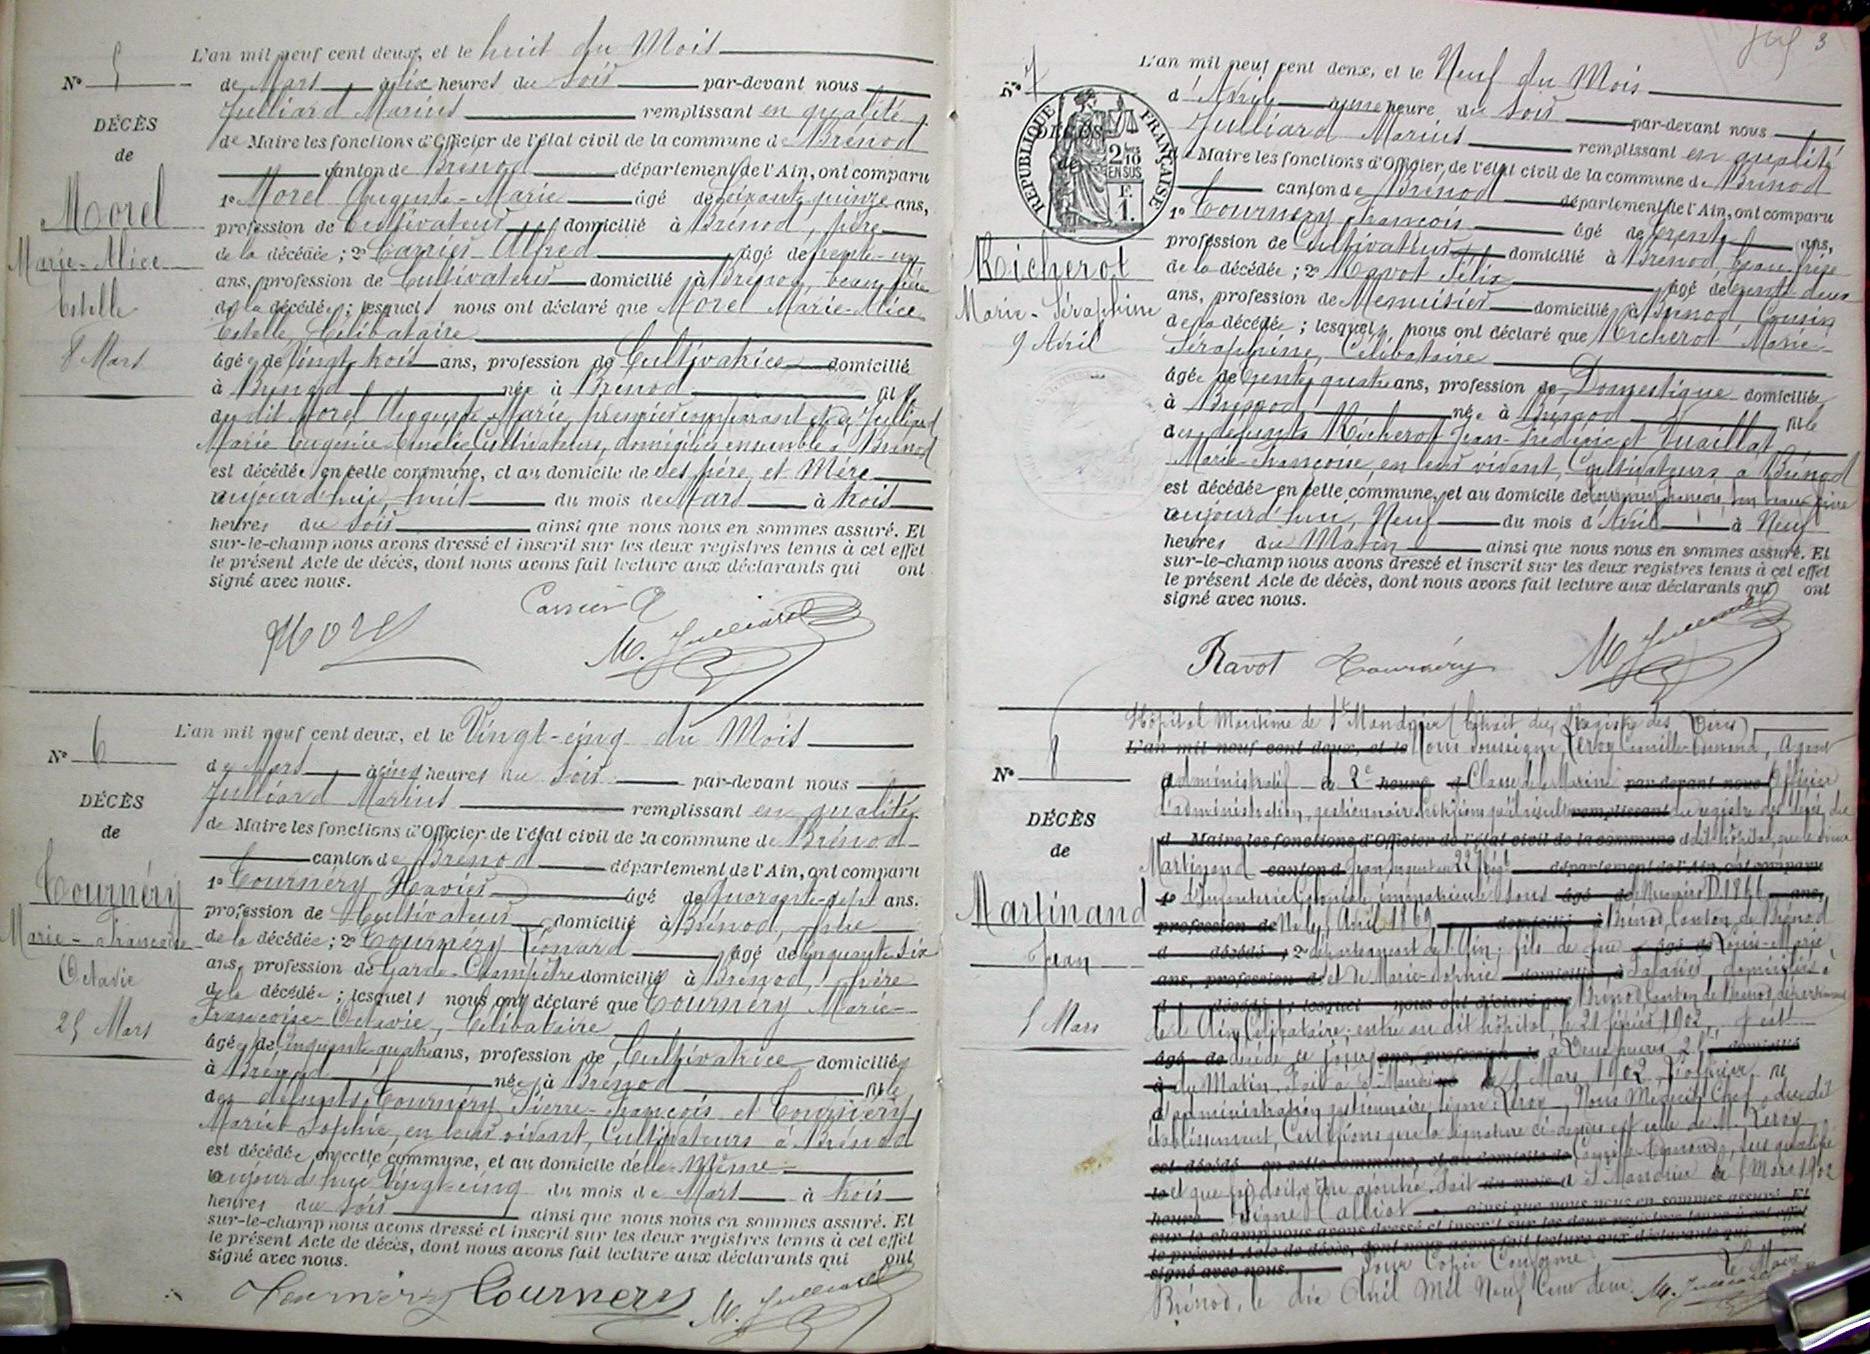 L'an mil neuf cent deux, et le huit du Mois
N° 5
de Mars à six heures du soir par-devant nous
Julliard Marius remplissant en qualité
DÉCÈS
de Maire les fonctions d'Officier de l'état civil de la commune de Brénod
de
canton de Brénod département de l'Ain, ont comparu
Morel
1° Morel Auguste-Marie âgé de soixante quinze ans,
profession de Cultivateur domicilié à Brénod, père
Marie-Alice
de la décédée ; 2° Carrier Alfred âgé de trente-un
ans, profession de Cultivateur domicilié à Brénod, beau frère
Estelle
de la décédée ; lesquels nous ont déclaré que Morel Marie-Alice
Estelle, Célibataire
8 Mars
âgée de Vingt trois ans, profession de Cultivatrice domiciliée
à Brénod née à Brénod fille
du dit Morel Auguste-Marie, premier comparant et de Julliard
Marie Eugénie Cultivateurs, domiciliés ensemble à Brénod
est décédée en cette commune, et au domicile de ses père et Mère
aujourd'hui, huit du mois de Mars à trois
heures du soir ainsi que nous nous en sommes assuré. Et
sur-le-champ nous avons dressé et inscrit sur les deux registres tenus à cet effet
le présent Acte de décès, dont nous avons fait lecture aux déclarants qui ont
signé avec nous.
Morel Carrier A M. Julliard
L'an mil neuf cent deux, et le Vingt-cinq du Mois
N° 6
de Mars à cinq heures du soir par-devant nous
Julliard Marius remplissant en qualité
DÉCÈS
de Maire les fonctions d'Officier de l'état civil de la commune de Brénod
de
canton de Brénod département de l'Ain, ont comparu
Tournéry
1° Tournéry Xavier âgé de Quarante-sept ans.
profession de Cultivateur domicilié à Brénod, frère
Marie-Françoise
de la décédée ; 2° Tournéry Léonard âgé de cinquante six
Octavie
ans, profession de Garde-Champêtre domicilié à Brénod, frère
de la décédée ; lesquels nous ont déclaré que Tournéry Marie-
25 Mars
Françoise-Octavie, Célibataire
âgée de cinquante-quatre ans, profession de Cultivatrice domiciliée
à Brénod née à Brénod fille
des défunts Tournéry Pierre-François et Tournéry
Marie Sophie, en leur vivant, Cultivateurs à Brénod
est décédée en cette commune, et au domicile d'elle Même
aujourd'hui Vingt-cinq du mois de Mars à trois
heures du soir ainsi que nous nous en sommes assuré. Et
sur-le-champ nous avons dressé et inscrit sur les deux registres tenus à cet effet
le présent Acte de décès, dont nous avons fait lecture aux déclarants qui ont
signé avec nous.
Tournéry Tournery M. Julliard
3
L'an mil neuf cent deux, et le Neuf du Mois
N° 7
d'Avril à une heure du soir par-devant nous
RÉPUBLIQUE FRANÇAISE
2/10 EN SUS
F. 1.
DÉCÈS
de
Julliard Marius remplissant en qualité
de Maire les fonctions d'Officier de l'état civil de la commune de Brénod
canton de Brénod département de l'Ain, ont comparu
1° Tournéry François âgé de trente ans,
Richerot
profession de Cultivateur domicilié à Brénod, beau-frère
de la décédée ; 2° Ravot Félix âgé de trente deux
Marie-Séraphine
ans, profession de Menuisier domicilié à Brénod Cousin
9 Avril
de la décédée ; lesquels nous ont déclaré que Richerot Marie-
Séraphine, Célibataire
âgée de trente quatre ans, profession de Domestique domiciliée
à Brénod née à Brénod fille
des défunts Richerot Jean-Frédéric et Quaillat
Marie-Françoise, en leur vivant, Cultivateurs à Brénod
est décédée en cette commune, et au domicile de Tournéry François, son beau frère
aujourd'hui, Neuf du mois d'Avril à Neuf
heures du Matin ainsi que nous nous en sommes assuré. Et
sur-le-champ nous avons dressé et inscrit sur les deux registres tenus à cet effet
le présent Acte de décès, dont nous avons fait lecture aux déclarants qui ont
signé avec nous.
Ravot Tournéry M Julliard
Hôpital Maritime de St Mandrier (Extrait du Registre des Décès)
L'an mil neuf cent deux, et le Nous soussigné, Leroy Camille-Edmond, Agent
N° 8
administratif de 2e heure Classe de la Marine par-devant nous Officier
d'administration, gestionnaire, certifions qu'il résulte remplissant du registre des décès du
DÉCÈS
d Maire les fonctions d'Officier de l'état civil de la commune dudit hôpital, que le sieur
de
Martinand canton d Jean, sergent au 22 Régt département de l'Ain, ont comparu
1° d'Infanterie Coloniale, immatriculé sous âgé de Numéro 1866 ans,
Martinand
profession de Né le Avril 1869, domicilié à Brénod, Canton de Brénod
d décédé ; 2° département de l'Ain ; fils de feu âgé de Louis-Marie
Jean
ans, profession de et de Marie-Sophie domicilié à domiciliés à
d décédé ; lesquel nous ont déclaré que Brénod, Canton de Brénod, département
5 Mars
de l'Ain, Célibataire ; entré au dit hôpital, le 21 février 1902, y est
âgé de décédé ce jour ans, profession de à heures domicilié
à du Matin. Fait à St-Mandrier le 5 Mars 1902, L'officier
d'administration gestionnaire, signé : Leroy. Nous Médecin Chef, du dit
établissement, Certifions que la signature ci-dessus est celle de M. Leroy
est décédé en cette commune, et au domicile de Camille Edmond, sus qualifié
le et que foi doit y être ajoutée. Fait du mois d à St Mandrier le 5 Mars 1902
heures Signé ainsi que nous nous en sommes assuré. Et
sur-le-champ nous avons dressé et inscrit sur les deux registres tenus à cet effet
le présent Acte de décès, dont nous avons fait lecture aux déclarants qui ont
signé avec nous. Pour Copie Conforme
Le Maire
Brénod, le dix Avril Mil Neuf Cent deux. M. Julliard